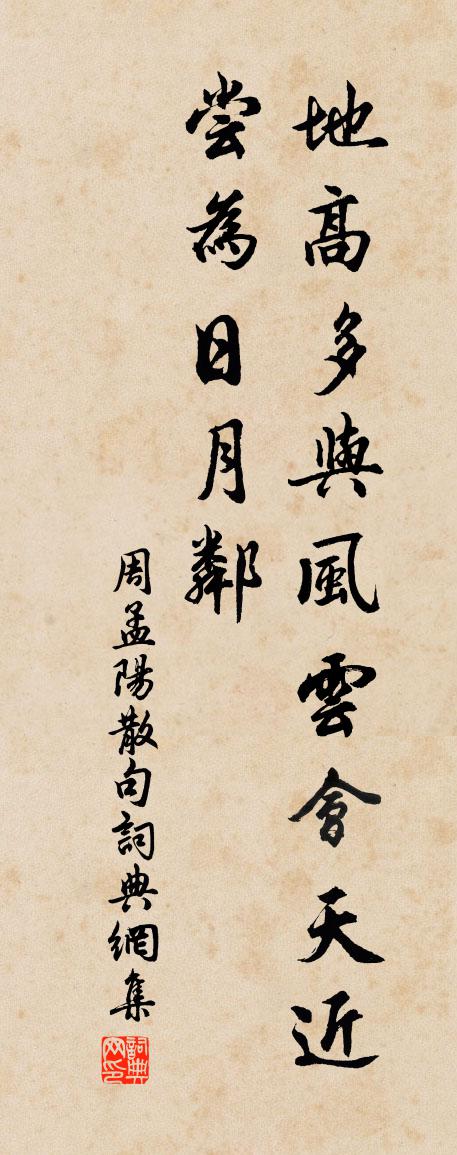 地高多與風雲會天近
尝為日月鄰
周孟陽散句詞典網集
詞典网印